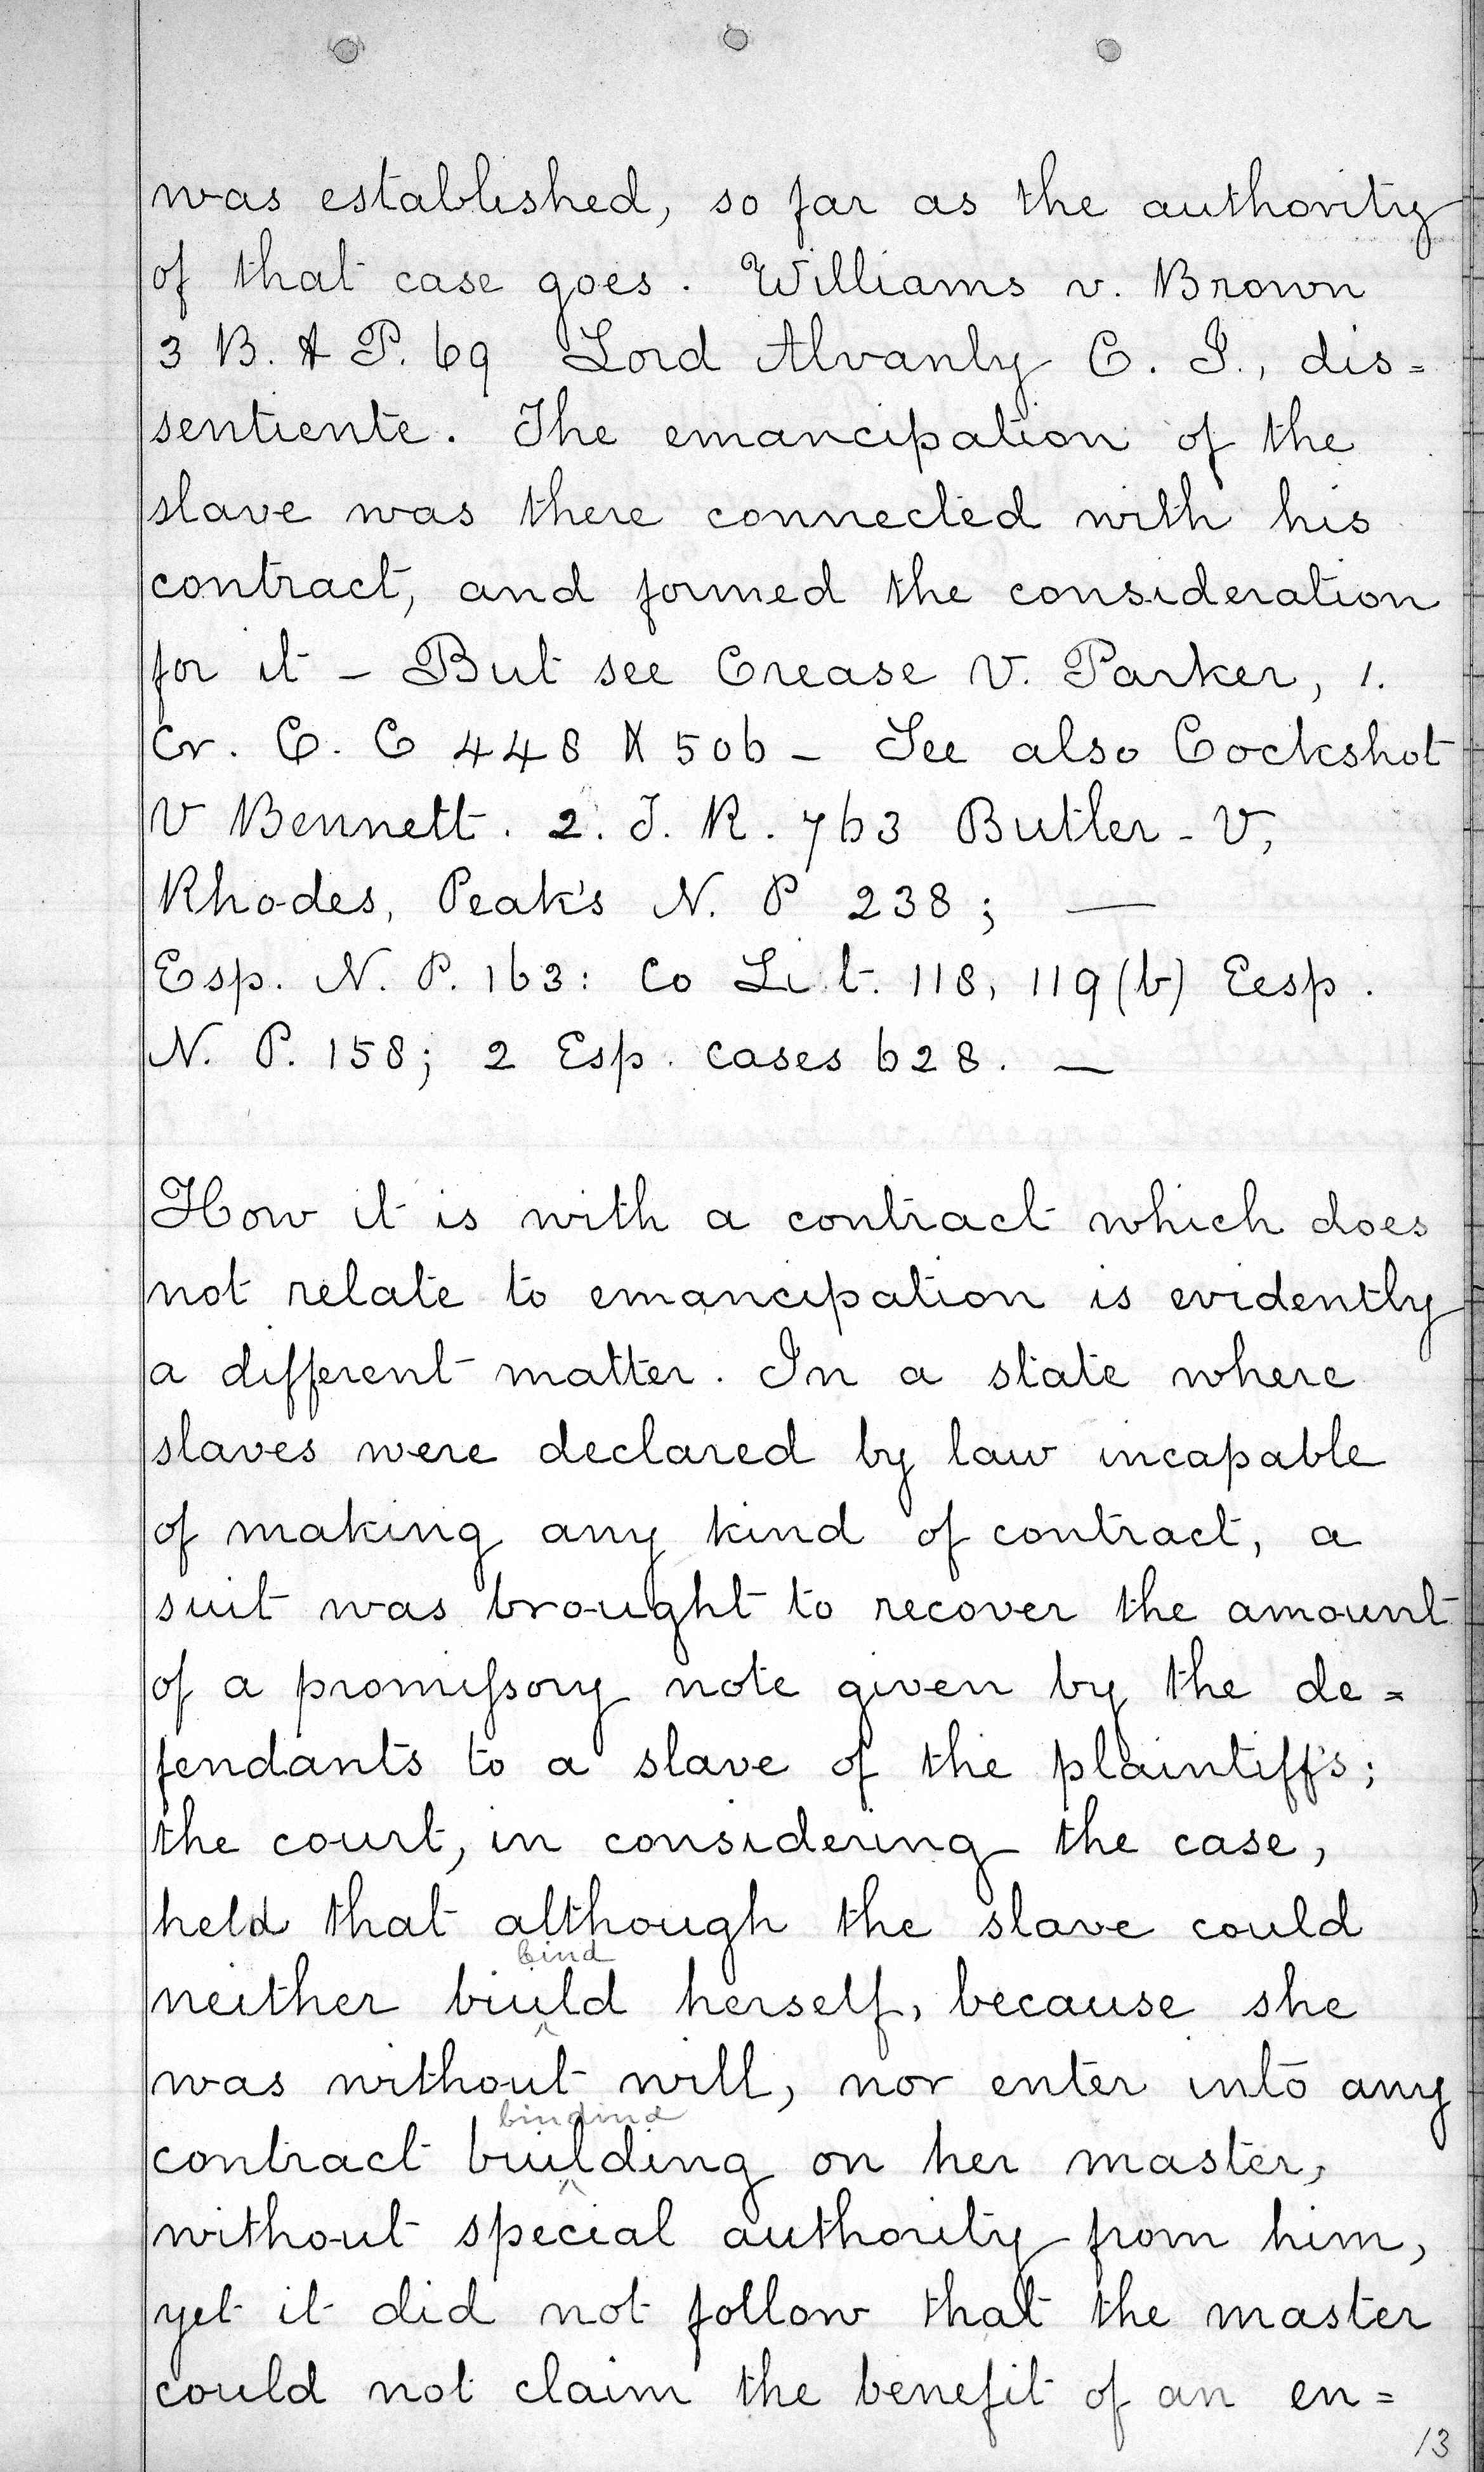 was established, so far as the authority
of that case goes. Williams v. Brown
3 B. & P. 69 Lord Alvanly C. J., dis=
sentiente. The emancipation of the
slave was there connected with his
contract, and formed the consideration
for it - But see Crease v. Parker, 1.
Cr. C. C 448 & 506 - See also Cockshot
v Bennett. 2. T. R. 763 Butler - v,
Rhodes, Peak's N. P 238; —
Esp. N. P. 163: Co Lit. 118, 119 (b) Eesp.
N. P. 158; 2 Esp. cases 628. —
How it is with a contract which does
not relate to emancipation is evidently
a different matter. In a state where
slaves were declared by law incapable
of making any kind of contract, a
suit was brought to recover the amount
of a promissory note given by the de=
fendants to a slave of the plaintiff's;
the court, in considering the case,
held that although the slave could
bind
neither biuld herself, because she
was without will, nor enter into any
bindind
contract building on her master,
without special authority from him,
yet it did not follow that the master
could not claim the benefit of an en=
13